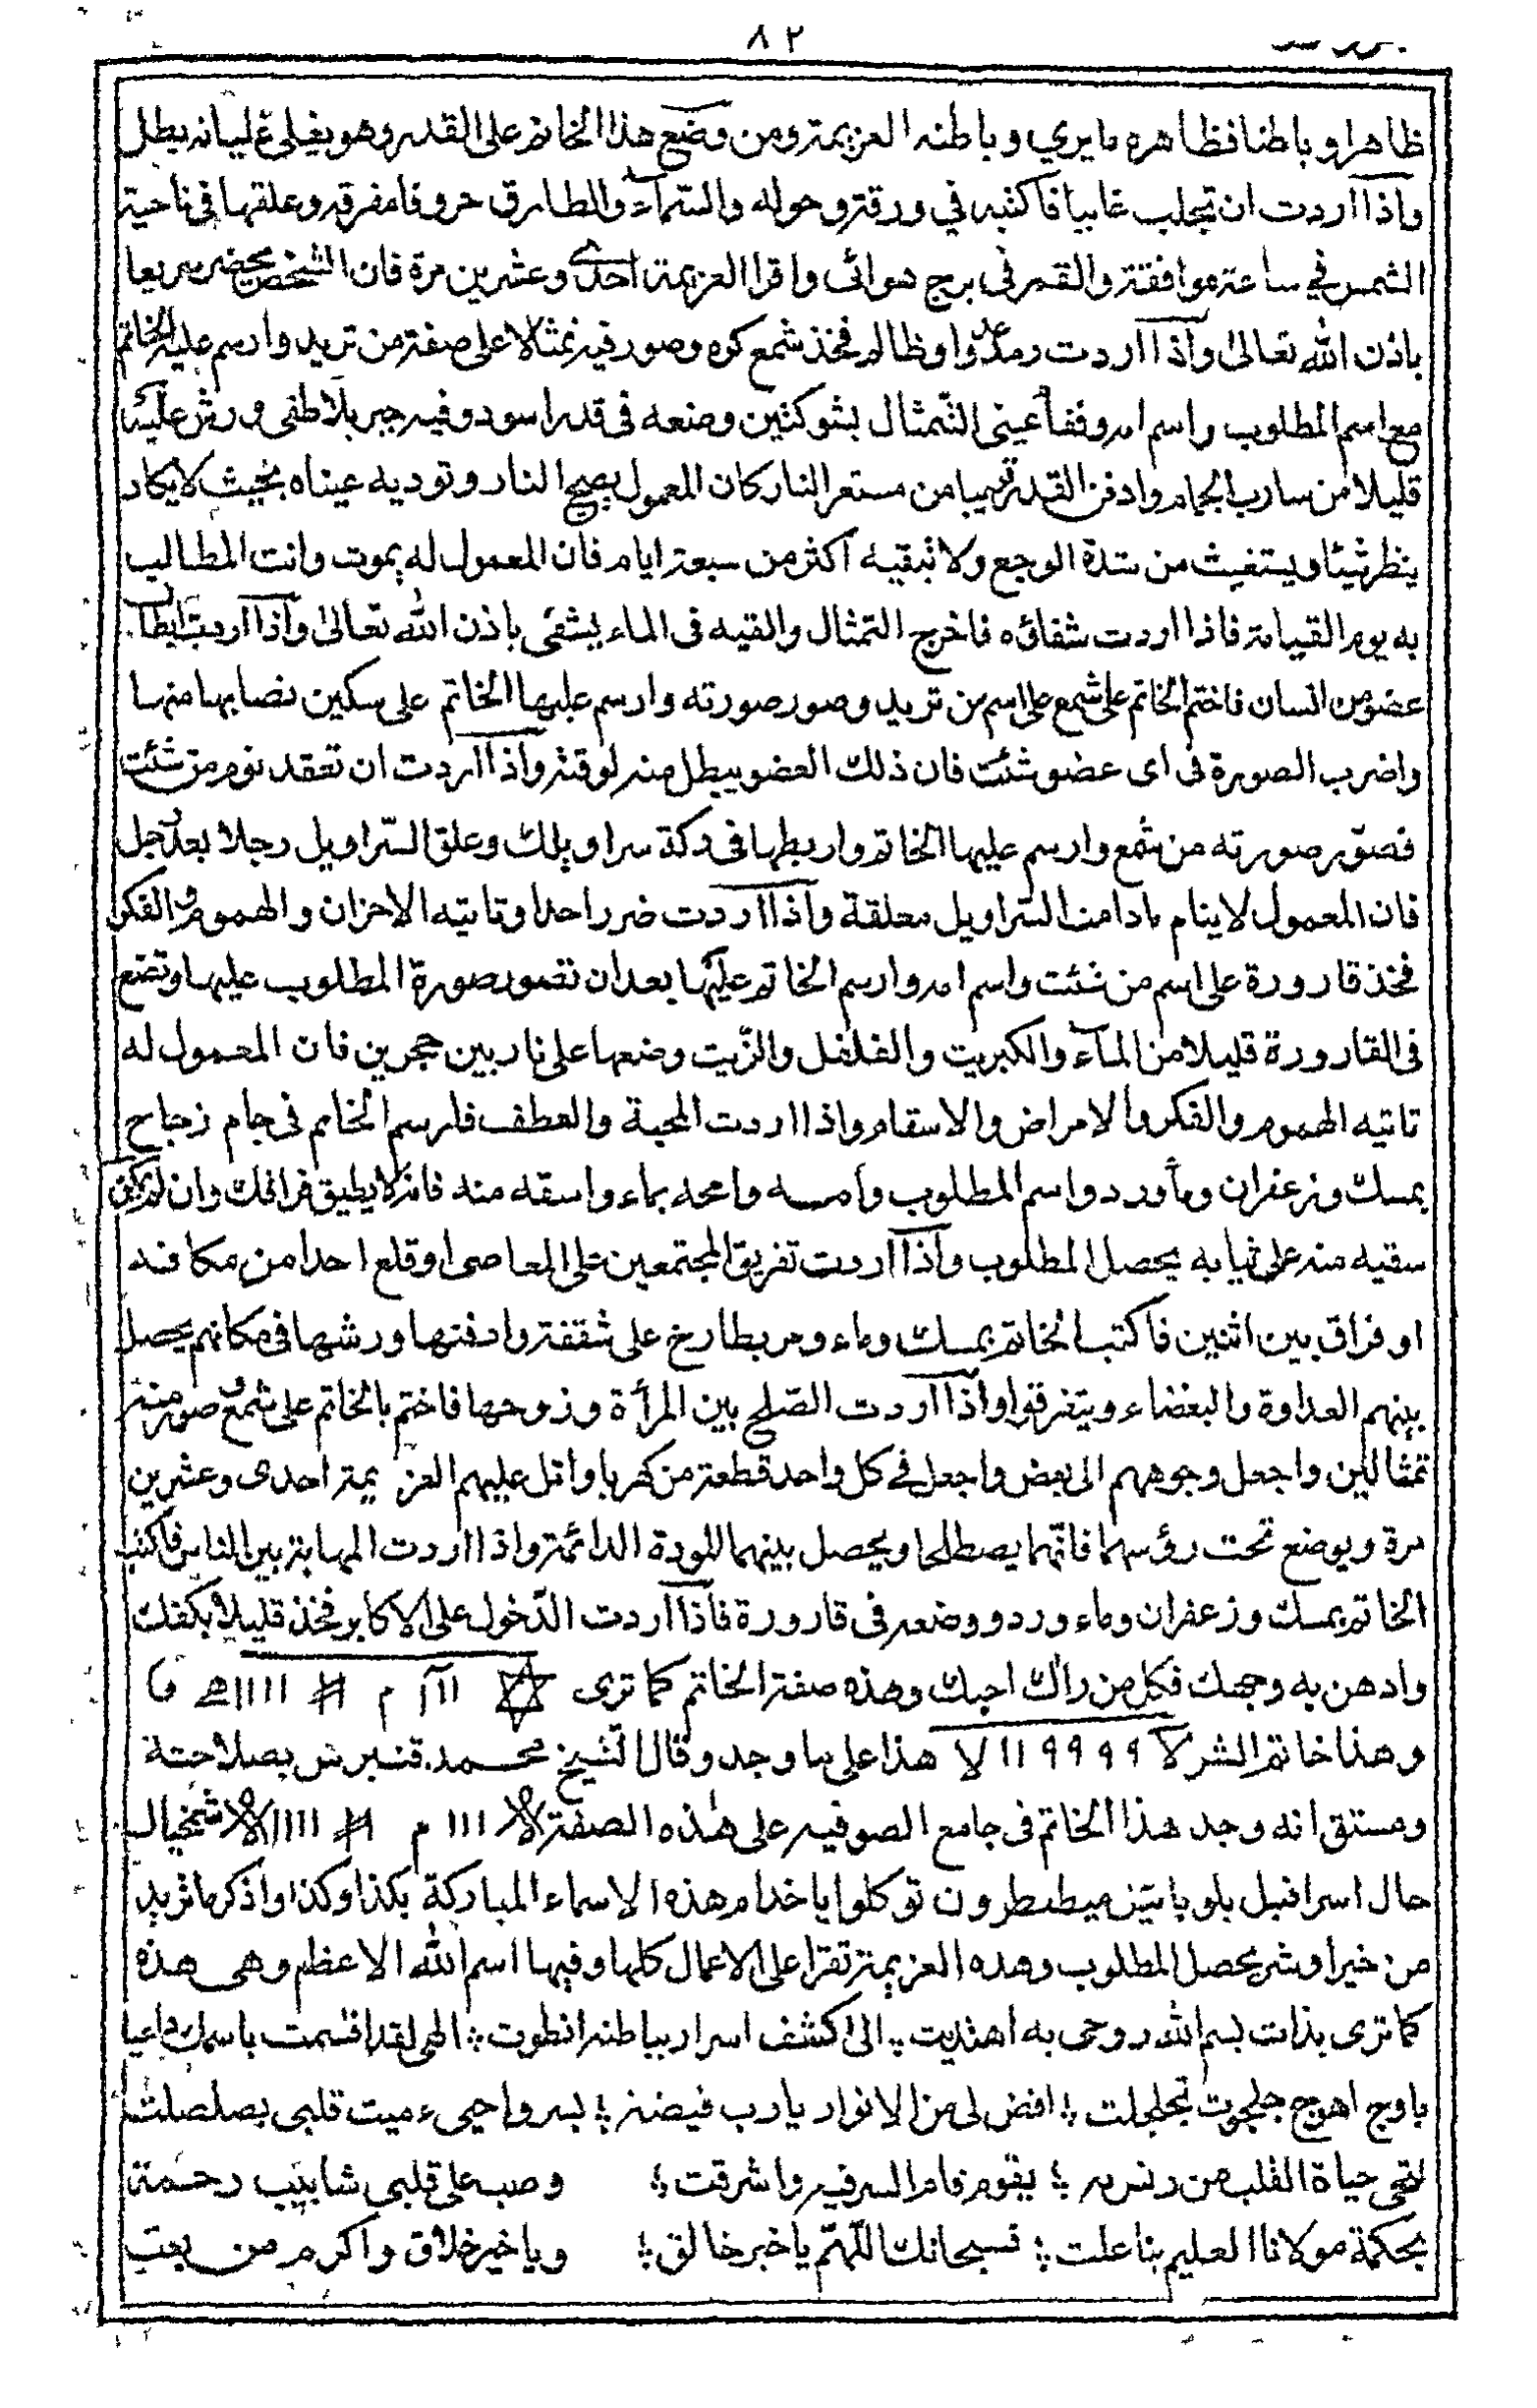 ٨٢
ظاهرا وباطنا فظاهره ما يري وباطنه العزيمة ومن وضع هذا الخاتم على القدر وهو يغلي غليانه يبطل
واذا اردت ان تجلب غايبا فاكتبه في ورقة وحوله والسماء والطارق حروفا مفرقه وعلقها في ناحية
الشمس في ساعة موافقة والقمر في برج هوائى واقرا العزيمة احدى وعشرين مرة فان الشخص يحضر سريعا
باذن الله تعالى واذا اردت رمد عدوا وظالم فخذ شمع كره وصور فيه تمثالا على صفة من تريد وارسم عليه الخاتم
مع اسم المطلوب واسم امه وفقأ عينى التمثال بشوكتين وضعه فى قدر اسود وفيه جير بلا طفى ورش عليه
قليلا من سارب الحمام وادفن القدر قريبا من مستعر النار كان المعمول يصيح النار وتوديه عيناه بحيث لا يكاد
ينظر شيئا ويستغيث من شدة الوجع ولا تبقيه اكثر من سبعة ايام فان المعمول له يموت وانت المطالب
به يوم القيامة فاذا اردت شفاؤه فاخرج التمثال والقيه فى الماء يشفى باذن الله تعالى واذا اردت ابطال
عضو من انسان فاختم الخاتم على شمع على اسم من تريد وصور صورته وارسم عليها الخاتم على سكين نصابها منها
واضرب الصورة فى اى عضو شئت فان ذلك العضو يبطل منه لوقته واذا اردت ان تعقد نوم من شئت
فصور صورته من شمع وارسم عليها الخاتم واربطها فى دكة سراويلك وعلق السراويل رجلا بعد رجل
فان المعمول لا ينام مادامت السراويل معلقة واذا اردت ضرر احد او تاتيه الاحزان والهموم والفكر
فخذ قارورة على اسم من شئت واسم امه وارسم الخاتم عليها بعد ان تصور صورة المطلوب عليها وتضع
فى القارورة قليلا من الماء والكبريت والفلفل والزيت وضعها على نار بين حجرين فان المعمول له
تاتيه الهموم والفكر والامراض والاسقام واذا اردت المحبة والعطف فارسم الخاتم فى جام زجاج
بمسك وزعفران وماورد واسم المطلوب وامه وامحه بماء واسقه منه فانه لا يطيق فراقك وان لم يمكن
سقيه منه على ثيابه يحصل المطلوب واذا اردت تفريق المجتمعين على المعاصى او قلع احدا من مكانه
او فراق بين اثنين فاكتب الخاتم بمسك وماء ومر بطارخ على شقفة وادفنها ورشها فى مكانهم يحصل
بينهم العداوة والبغضاء ويتفرقوا واذا اردت الصلح بين المرأة وزوجها فاختم بالخاتم على شمع وصور منه
تمثالين واجعل وجوههم الى بعض واجعل في كل واحد قطعة من كهربا واتل عليهم العزيمة احدى وعشرين
مرة ويوضع تحت رؤسهما فانهما يصطلحا ويحصل بينهما المودة الدائمة واذا اردت المهابة بين الناس فاكتب
الخاتم بمسك وزعفران وماء ورد وضعه فى قارورة فاذا اردت الدخول على الاكابر فخذ قليلا بكفك
وادهن به وجهك فكل من راك احبك وهذه صفة الخاتم كما ترى ✡ ااآ م # اااا ھ و
وهذا خاتم الشر لا ٩٩٩٩ اا لا هذا على ما وجد وقال الشيخ محمد قنبرش بصلاحتة
ومستق انه وجد هذا الخاتم فى جامع الصوفيه على هذه الصفة ااا م # اااا شمخيال
حال اسرافيل ميططرون توكلوا يا خدام هذه الاسماء المباركة بكذا وكذا واذكر ما تريد
من خير او شر يحصل المطلوب وهده العزيمة تقرا على الاعمال كلها وفيها اسم الله الاعظم وهى هذه
كما ترى بذات بسم الله روحى به اهتديت ؛ الى كشف اسرار بباطنه انطوت ؛ الهى لقد اقسمت باسمك داعيا
باوج اهوج جلجوت تجلجلت ؛ افض لى من الانوار يا رب فيضة ؛ بسر واحيىء ميت قلبى بصلصلت
لتحى حياة القلب من دنس به ؛ بقيوم قام السر فيه واشرقت ؛ وصب على قلبى شابيب رحمة
بحكمة مولانا العليم بنا علت ؛ فسبحانك اللهم يا خير خالق ؛ ويا خير خلاق واكرم من بعث